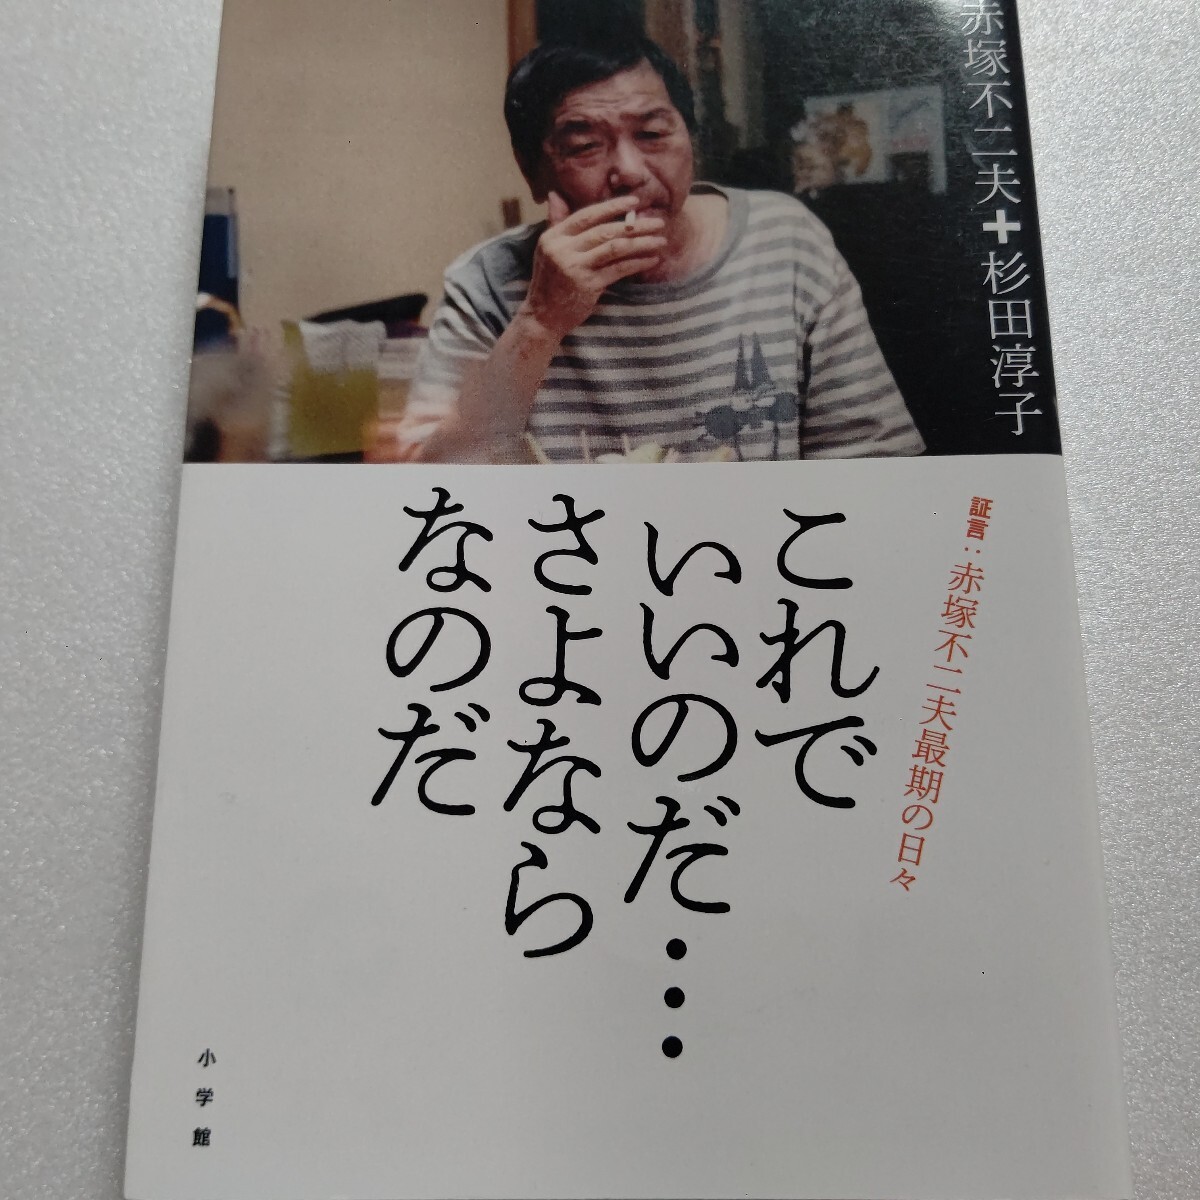 赤塚不二夫+杉田淳子
証言:赤塚不二夫最期の日々
これで
いいのだ…
さよなら
なのだ
小学館